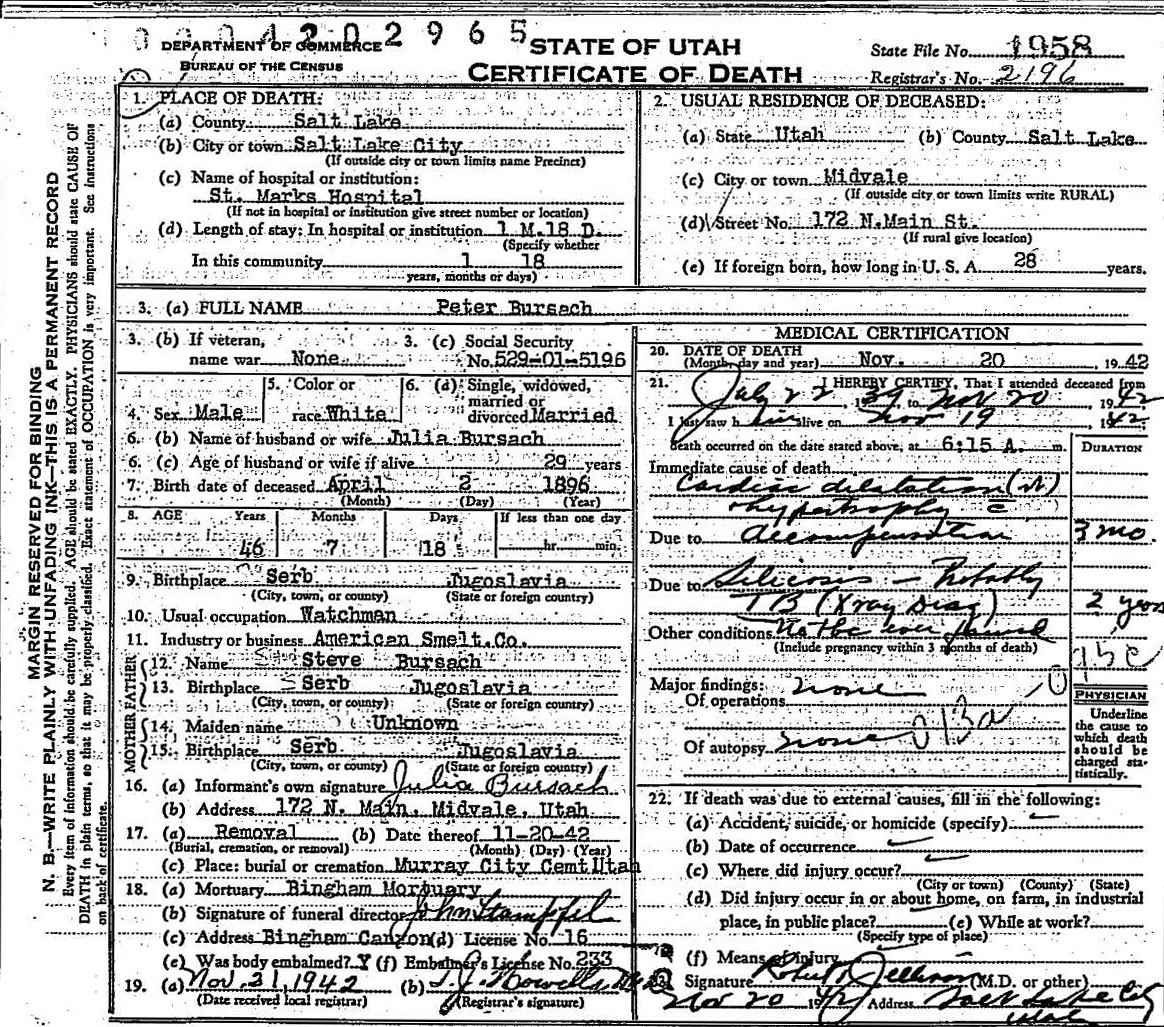 0 0 0 4 2 0 2 9 6 5
DEPARTMENT OF COMMERCE
BUREAU OF THE CENSUS
STATE OF UTAH
CERTIFICATE OF DEATH
State File No. 1958
Registrar's No. 2196
MARGIN RESERVED FOR BINDING
N. B.—WRITE PLAINLY WITH UNFADING INK—THIS IS A PERMANENT RECORD
Every item of information should be carefully supplied. AGE should be stated EXACTLY. PHYSICIANS should state CAUSE OF
DEATH in plain terms, so that it may be properly classified. Exact statement of OCCUPATION is very important. See instructions
on back of certificate.
1. PLACE OF DEATH:
(a) County Salt Lake
(b) City or town Salt Lake City
(If outside city or town limits name Precinct)
(c) Name of hospital or institution:
St. Marks Hospital
(If not in hospital or institution give street number or location)
(d) Length of stay: In hospital or institution 1 M.18 D.
(Specify whether
In this community 1 18
years, months or days)
2. USUAL RESIDENCE OF DECEASED:
(a) State Utah (b) County Salt Lake
(c) City or town Midvale
(If outside city or town limits write RURAL)
(d) Street No. 172 N.Main St.
(If rural give location)
(e) If foreign born, how long in U. S. A. 28 years.
3. (a) FULL NAME Peter Bursach
3. (b) If veteran, name war None
3. (c) Social Security No. 529-01-5196
4. Sex Male
5. Color or race White
6. (a) Single, widowed, married or divorced Married
6. (b) Name of husband or wife Julia Bursach
6. (c) Age of husband or wife if alive 29 years
7. Birth date of deceased April 2 1896
(Month) (Day) (Year)
8. AGE Years Months Days If less than one day
46 7 18 hr. min.
9. Birthplace Serb Jugoslavia
(City, town, or county) (State or foreign country)
10. Usual occupation Watchman
11. Industry or business American Smelt.Co.
FATHER
12. Name Steve Bursach
13. Birthplace Serb Jugoslavia
(City, town, or county) (State or foreign country)
MOTHER
14. Maiden name Unknown
15. Birthplace Serb Jugoslavia
(City, town, or county) (State or foreign country)
16. (a) Informant's own signature Julia Bursach
(b) Address 172 N. Main, Midvale, Utah
17. (a) Removal (b) Date thereof 11-20-42
(Burial, cremation, or removal) (Month) (Day) (Year)
(c) Place: burial or cremation Murray City Cemt Utah
18. (a) Mortuary Bingham Mortuary
(b) Signature of funeral director John Stampfel
(c) Address Bingham Canyon (d) License No. 16
(e) Was body embalmed? Y (f) Embalmer's License No. 233
19. (a) Nov. 21, 1942 (b) T.J. Howells, M.D.
(Date received local registrar) (Registrar's signature)
MEDICAL CERTIFICATION
20. DATE OF DEATH
(Month, day and year) Nov. 20, 1942
21. I HEREBY CERTIFY, That I attended deceased from
July 22 1939 to Nov 20, 1942
I last saw him alive on Nov 19 1942;
death occurred on the date stated above, at 6:15 A. m.
DURATION
Immediate cause of death
Cardiac dilatation (rt)
hypertrophy c̄
Due to decompensation 3 mo.
Due to Silicosis — Probably
TB (Xray Diag) 2 years
Other conditions No tbc ever found
(Include pregnancy within 3 months of death)
95c
Major findings:
Of operations none
Of autopsy none 013a
PHYSICIAN
Underline
the cause to
which death
should be
charged sta-
tistically.
22. If death was due to external causes, fill in the following:
(a) Accident, suicide, or homicide (specify)
(b) Date of occurrence
(c) Where did injury occur?
(City or town) (County) (State)
(d) Did injury occur in or about home, on farm, in industrial
place, in public place? (e) While at work?
(Specify type of place)
(f) Means of injury
23. Signature Robert (M.D. or other)
Nov 20 1942 Address Salt Lake City
Utah